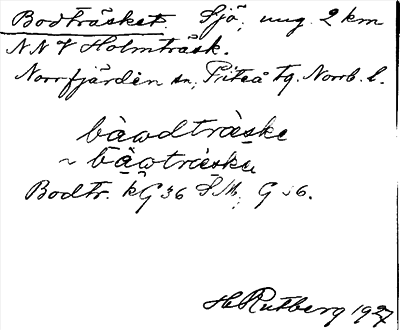 Bodträsket Sjö, ung. 2 km
NNV Holmträsk.
Norrfjärden sn, Piteå tg. Norrb. l.
bàωdträ̀ske
~ bàωträ̀ske
Bodtr. kG 36 SM; G 36.
H Rutberg 1927